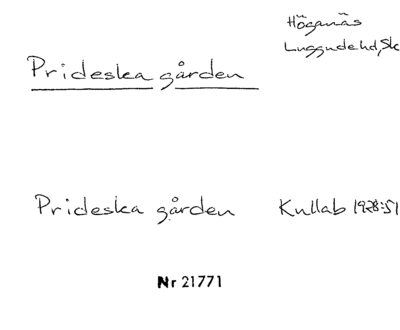 Höganäs
Luggude hd, Sk
Prideska gården
Prideska gården Kullab 1928:51
Nr 21771